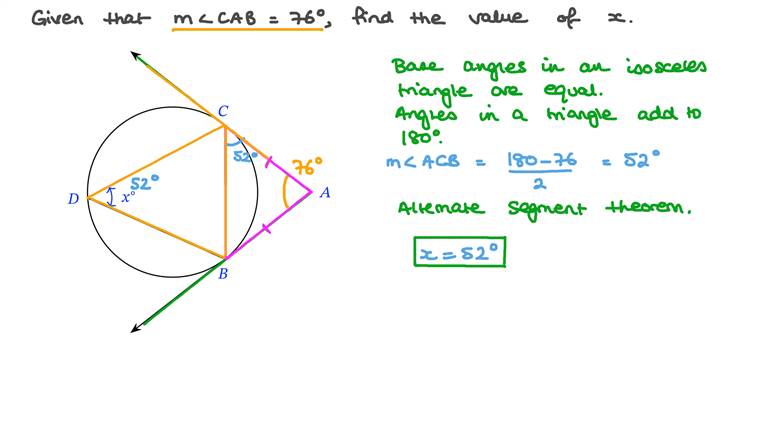 Given that m∠CAB = 76°, find the value of x.
Base angles in an isosceles
triangle are equal.
Angles in a triangle add to
180°.
m∠ACB = 180-76 / 2 = 52°
Alternate segment theorem.
x = 52°
C
52°
76°
52°
D
x°
A
B